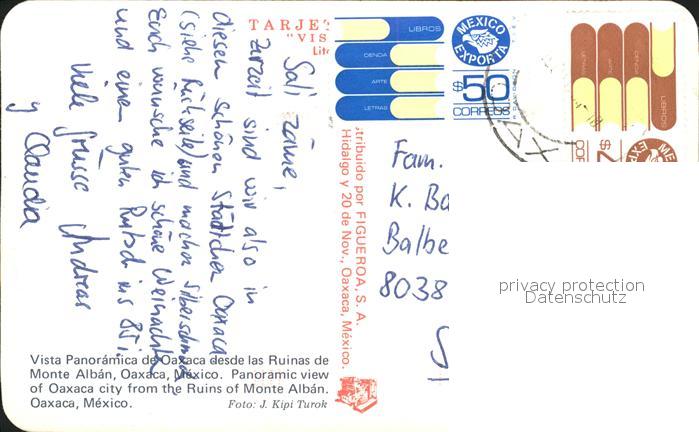 TARJE
"VIS
Lit
LIBROS
CIENCIA
ARTE
LETRAS
MEXICO
EXPORTA
$50
CORREOS
LIBROS
CIENCIA
ARTE
LETRAS
MEXICO
Sali zäme,
zurzeit sind wir also in
diesem schönen Städtchen Oaxaca
(siehe Rückseite) und machen Silberschmuck.
Euch wünsche ich schöne Weihnachten
und einen guten Rutsch ins 85!
Viele Grüsse Andreas
y Claudia
tribuido por FIGUEROA, S. A.
Hidalgo y 20 de Nov., Oaxaca, México.
Fam.
K. Bo
Balbe
8038
privacy protection
Datenschutz
Vista Panorámica de Oaxaca desde las Ruinas de
Monte Albán, Oaxaca, México. Panoramic view
of Oaxaca city from the Ruins of Monte Albán.
Oaxaca, México.
Foto: J. Kipi Turok